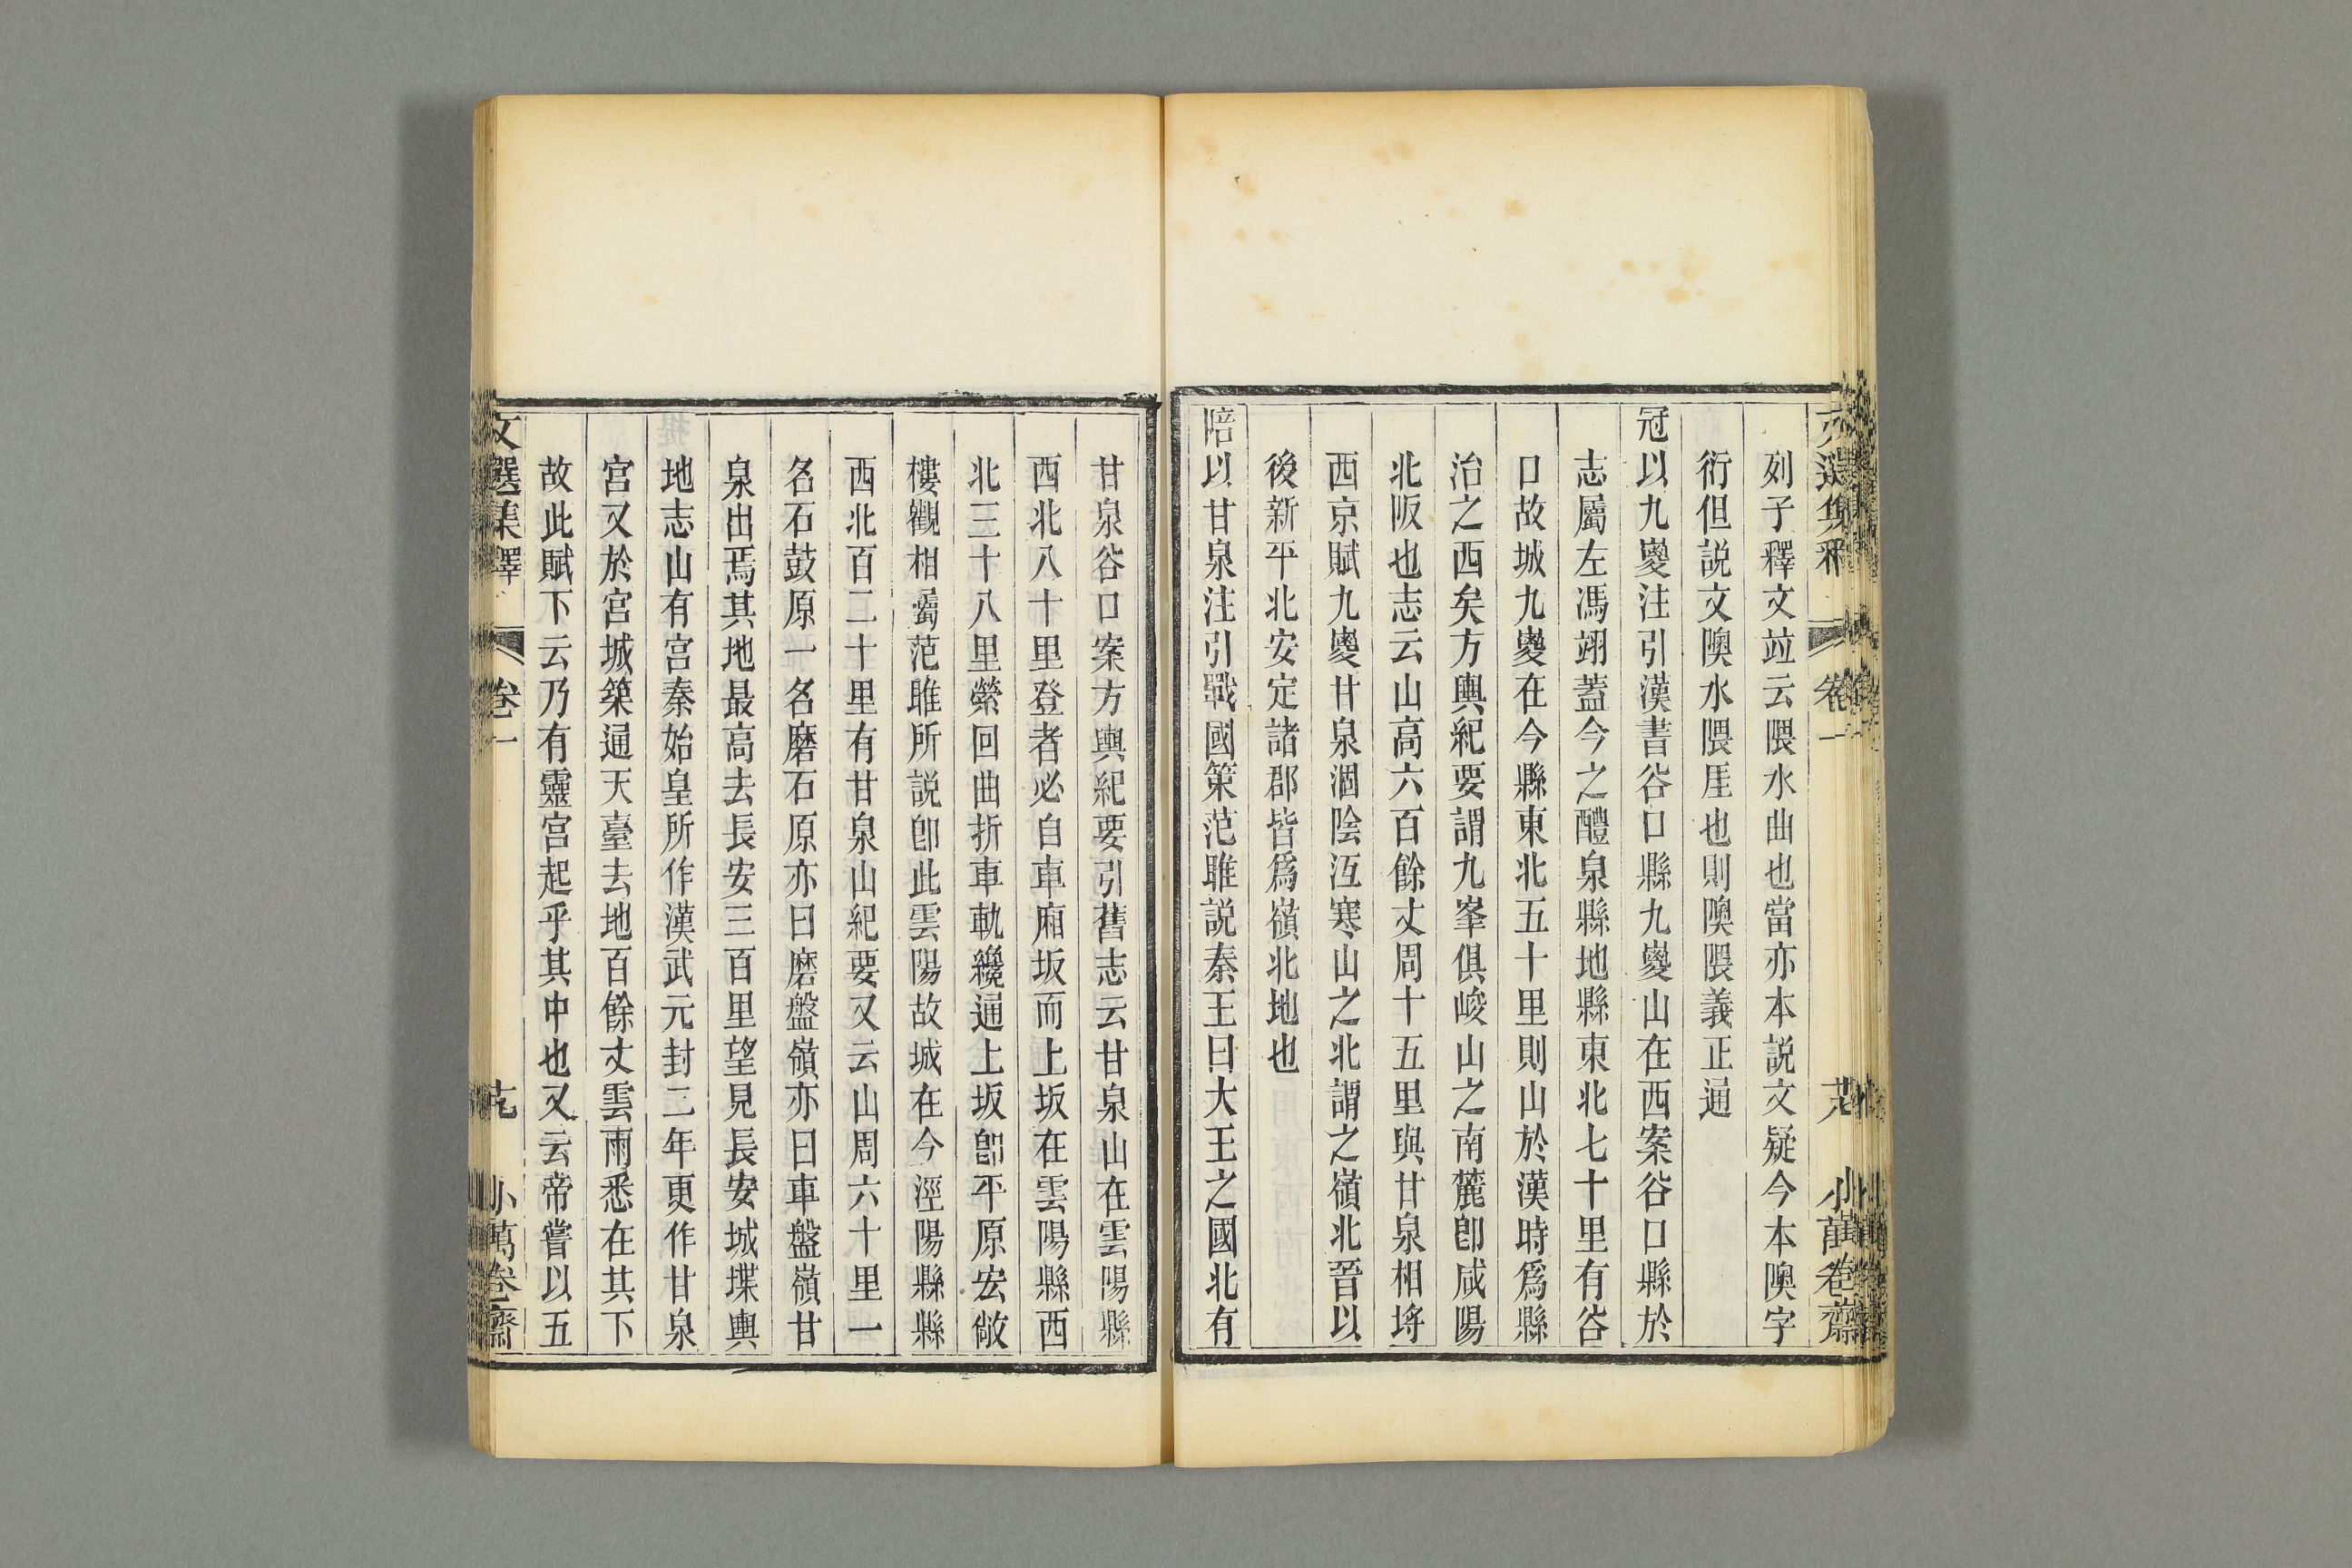 列子釋文竝云隈水曲也當亦本説文疑今本隩字
衍但説文隩水隈厓也則隩隈義正通
冠以九嵏注引漢書谷口縣九嵏山在西案谷口縣於
志屬左馮翊葢今之醴泉縣地縣東北七十里有谷
口故城九嵏在今縣東北五十里則山於漢時爲縣
治之西矣方輿紀要謂九峯俱峻山之南麓卽咸陽
北阪也志云山高六百餘丈周十五里與甘泉相埒
西京賦九嵏甘泉涸陰沍寒山之北謂之嶺北晉以
後新平北安定諸郡皆爲嶺北地也
陪以甘泉注引戰國策范雎説秦王曰大王之國北有
甘泉谷口案方輿紀要引舊志云甘泉山在雲陽縣
西北八十里登者必自車廂坂而上坂在雲陽縣西
北三十八里縈回曲折車軌纔通上坂卽平原宏敞
樓觀相屬范雎所説卽此雲陽故城在今涇陽縣縣
西北百二十里有甘泉山紀要又云山周六十里一
名石鼓原一名磨石原亦曰磨盤嶺亦曰車盤嶺甘
泉出焉其地最高去長安三百里望見長安城堞輿
地志山有宮秦始皇所作漢武元封二年更作甘泉
宮又於宮城築通天臺去地百餘丈雲雨悉在其下
故此賦下云乃有靈宮起乎其中也又云帝嘗以五
文選集釋 卷一 小萬卷齋